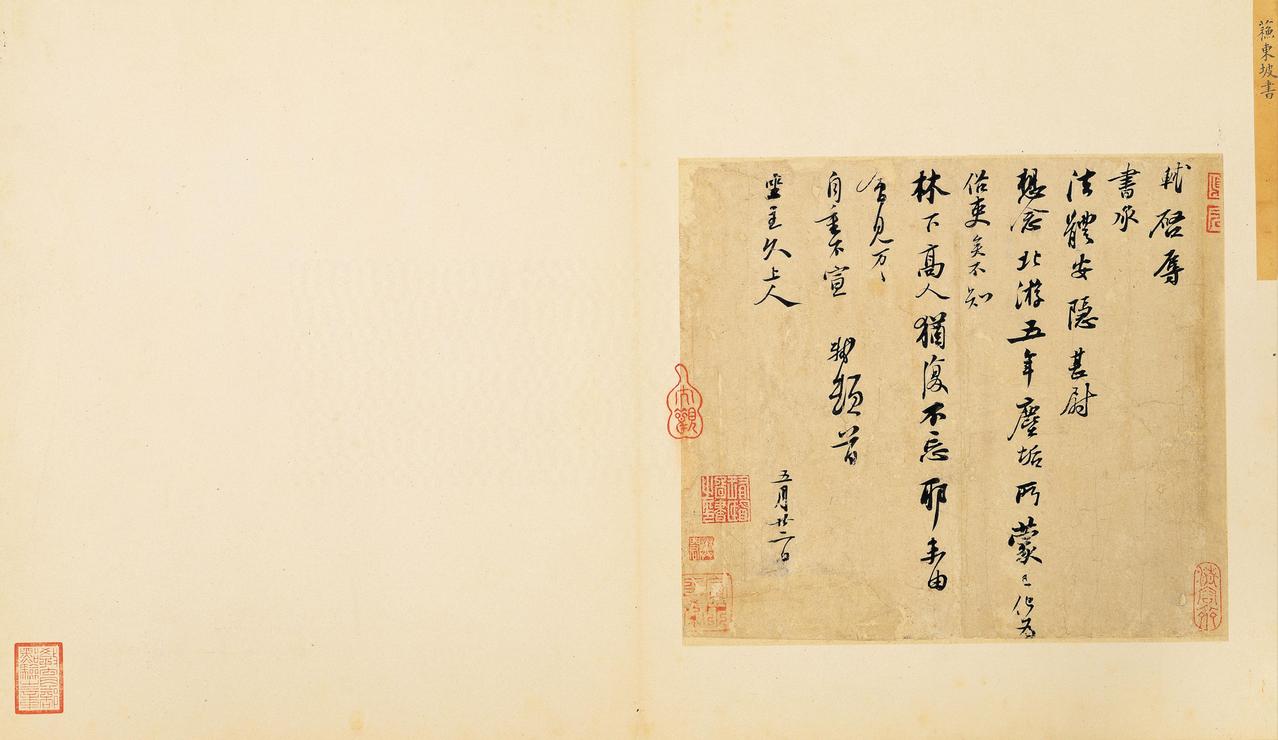 蘓東坡書
軾啓辱
書承
法體安隱甚尉
想念北游五年塵垢所蒙已化為
俗吏矣不知
林下高人猶復不忘耶未由
會見万〻
自重不宣　軾頓首
坐主久上人
五月廿二日
大觀